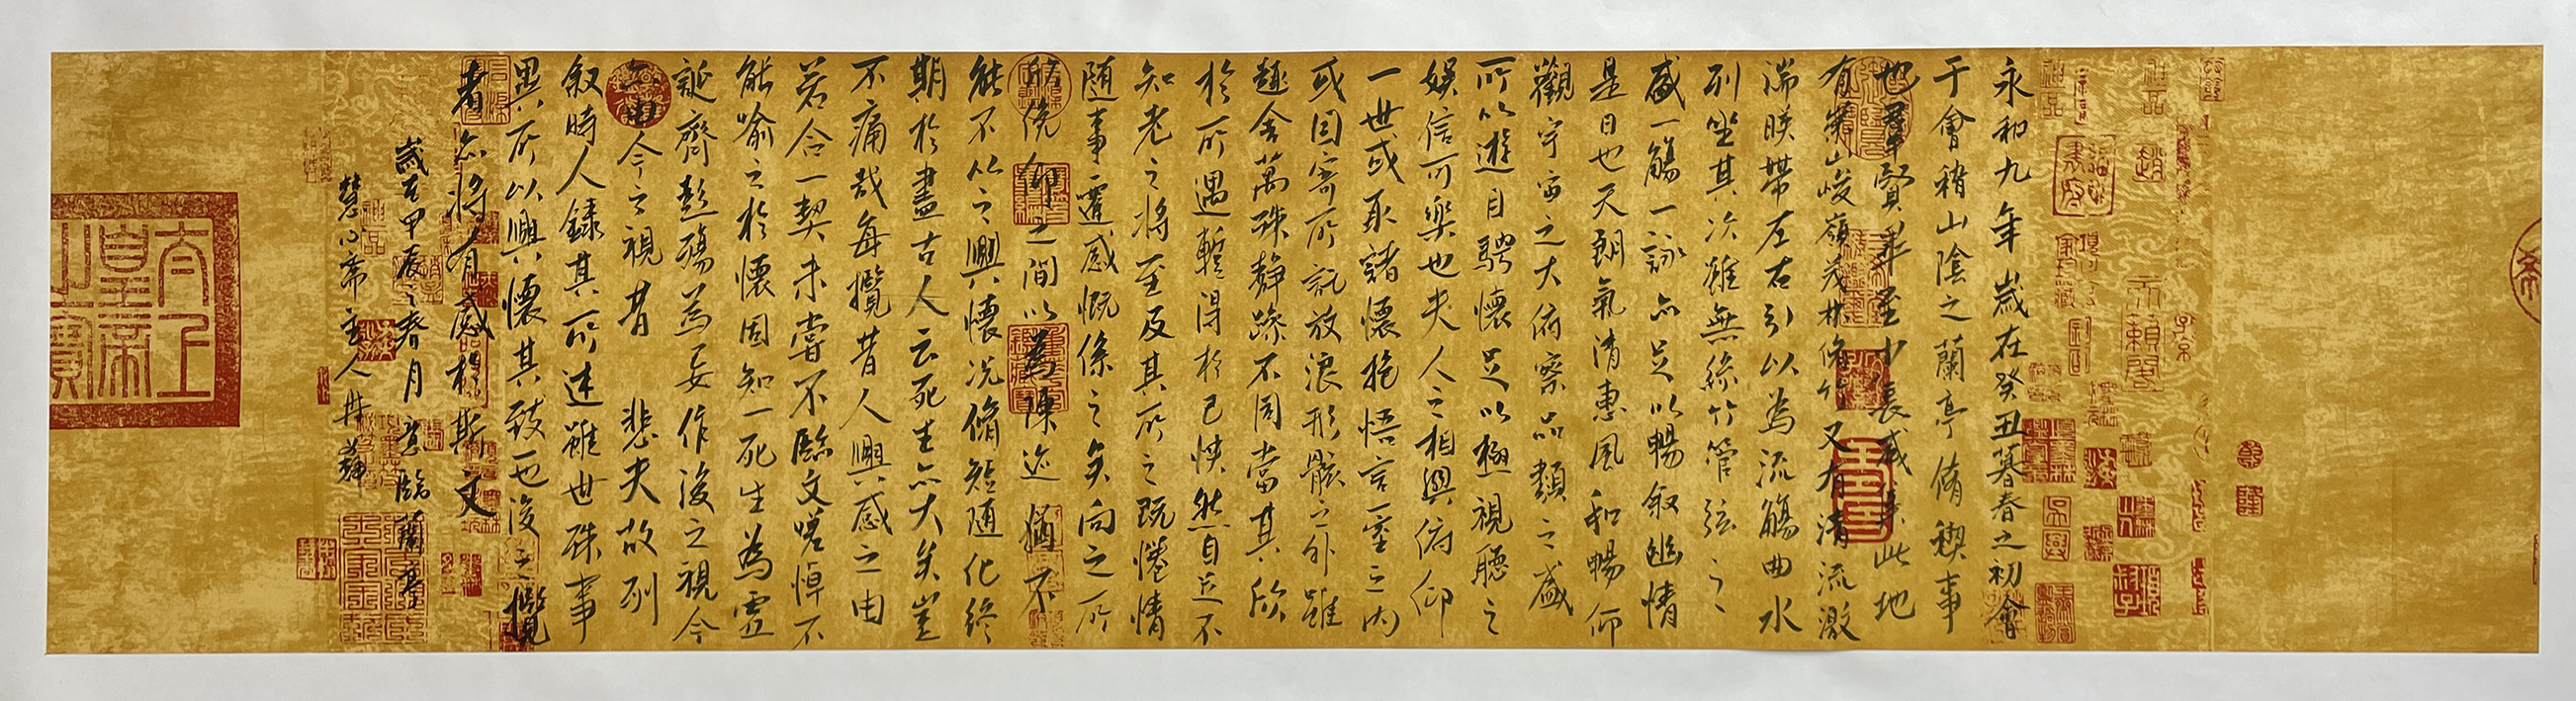 永和九年歲在癸丑暮春之初會
于會稽山陰之蘭亭脩稧事
也群賢畢至少長咸集此地
有崇山峻嶺茂林脩竹又有清流激
湍暎帶左右引以為流觴曲水
列坐其次雖無絲竹管弦之
盛一觴一詠亦足以暢敘幽情
是日也天朗氣清惠風和暢仰
觀宇宙之大俯察品類之盛
所以遊目騁懷足以極視聽之
娛信可樂也夫人之相與俯仰
一世或取諸懷抱悟言一室之內
或因寄所託放浪形骸之外雖
趣舍萬殊靜躁不同當其欣
於所遇暫得於己快然自足不
知老之將至及其所之既惓情
隨事遷感慨係之矣向之所
欣俛仰之間以為陳迹猶不
能不以之興懷況脩短隨化終
期於盡古人云死生亦大矣豈
不痛哉每攬昔人興感之由
若合一契未嘗不臨文嗟悼不
能喻之於懷固知一死生為虛
誕齊彭殤為妄作後之視今
亦由今之視昔 悲夫故列
敘時人錄其所述雖世殊事
異所以興懷其致一也後之攬
者亦將有感於斯文
歲在甲辰之春月 意臨蘭亭
慧心齋主人
太上皇帝